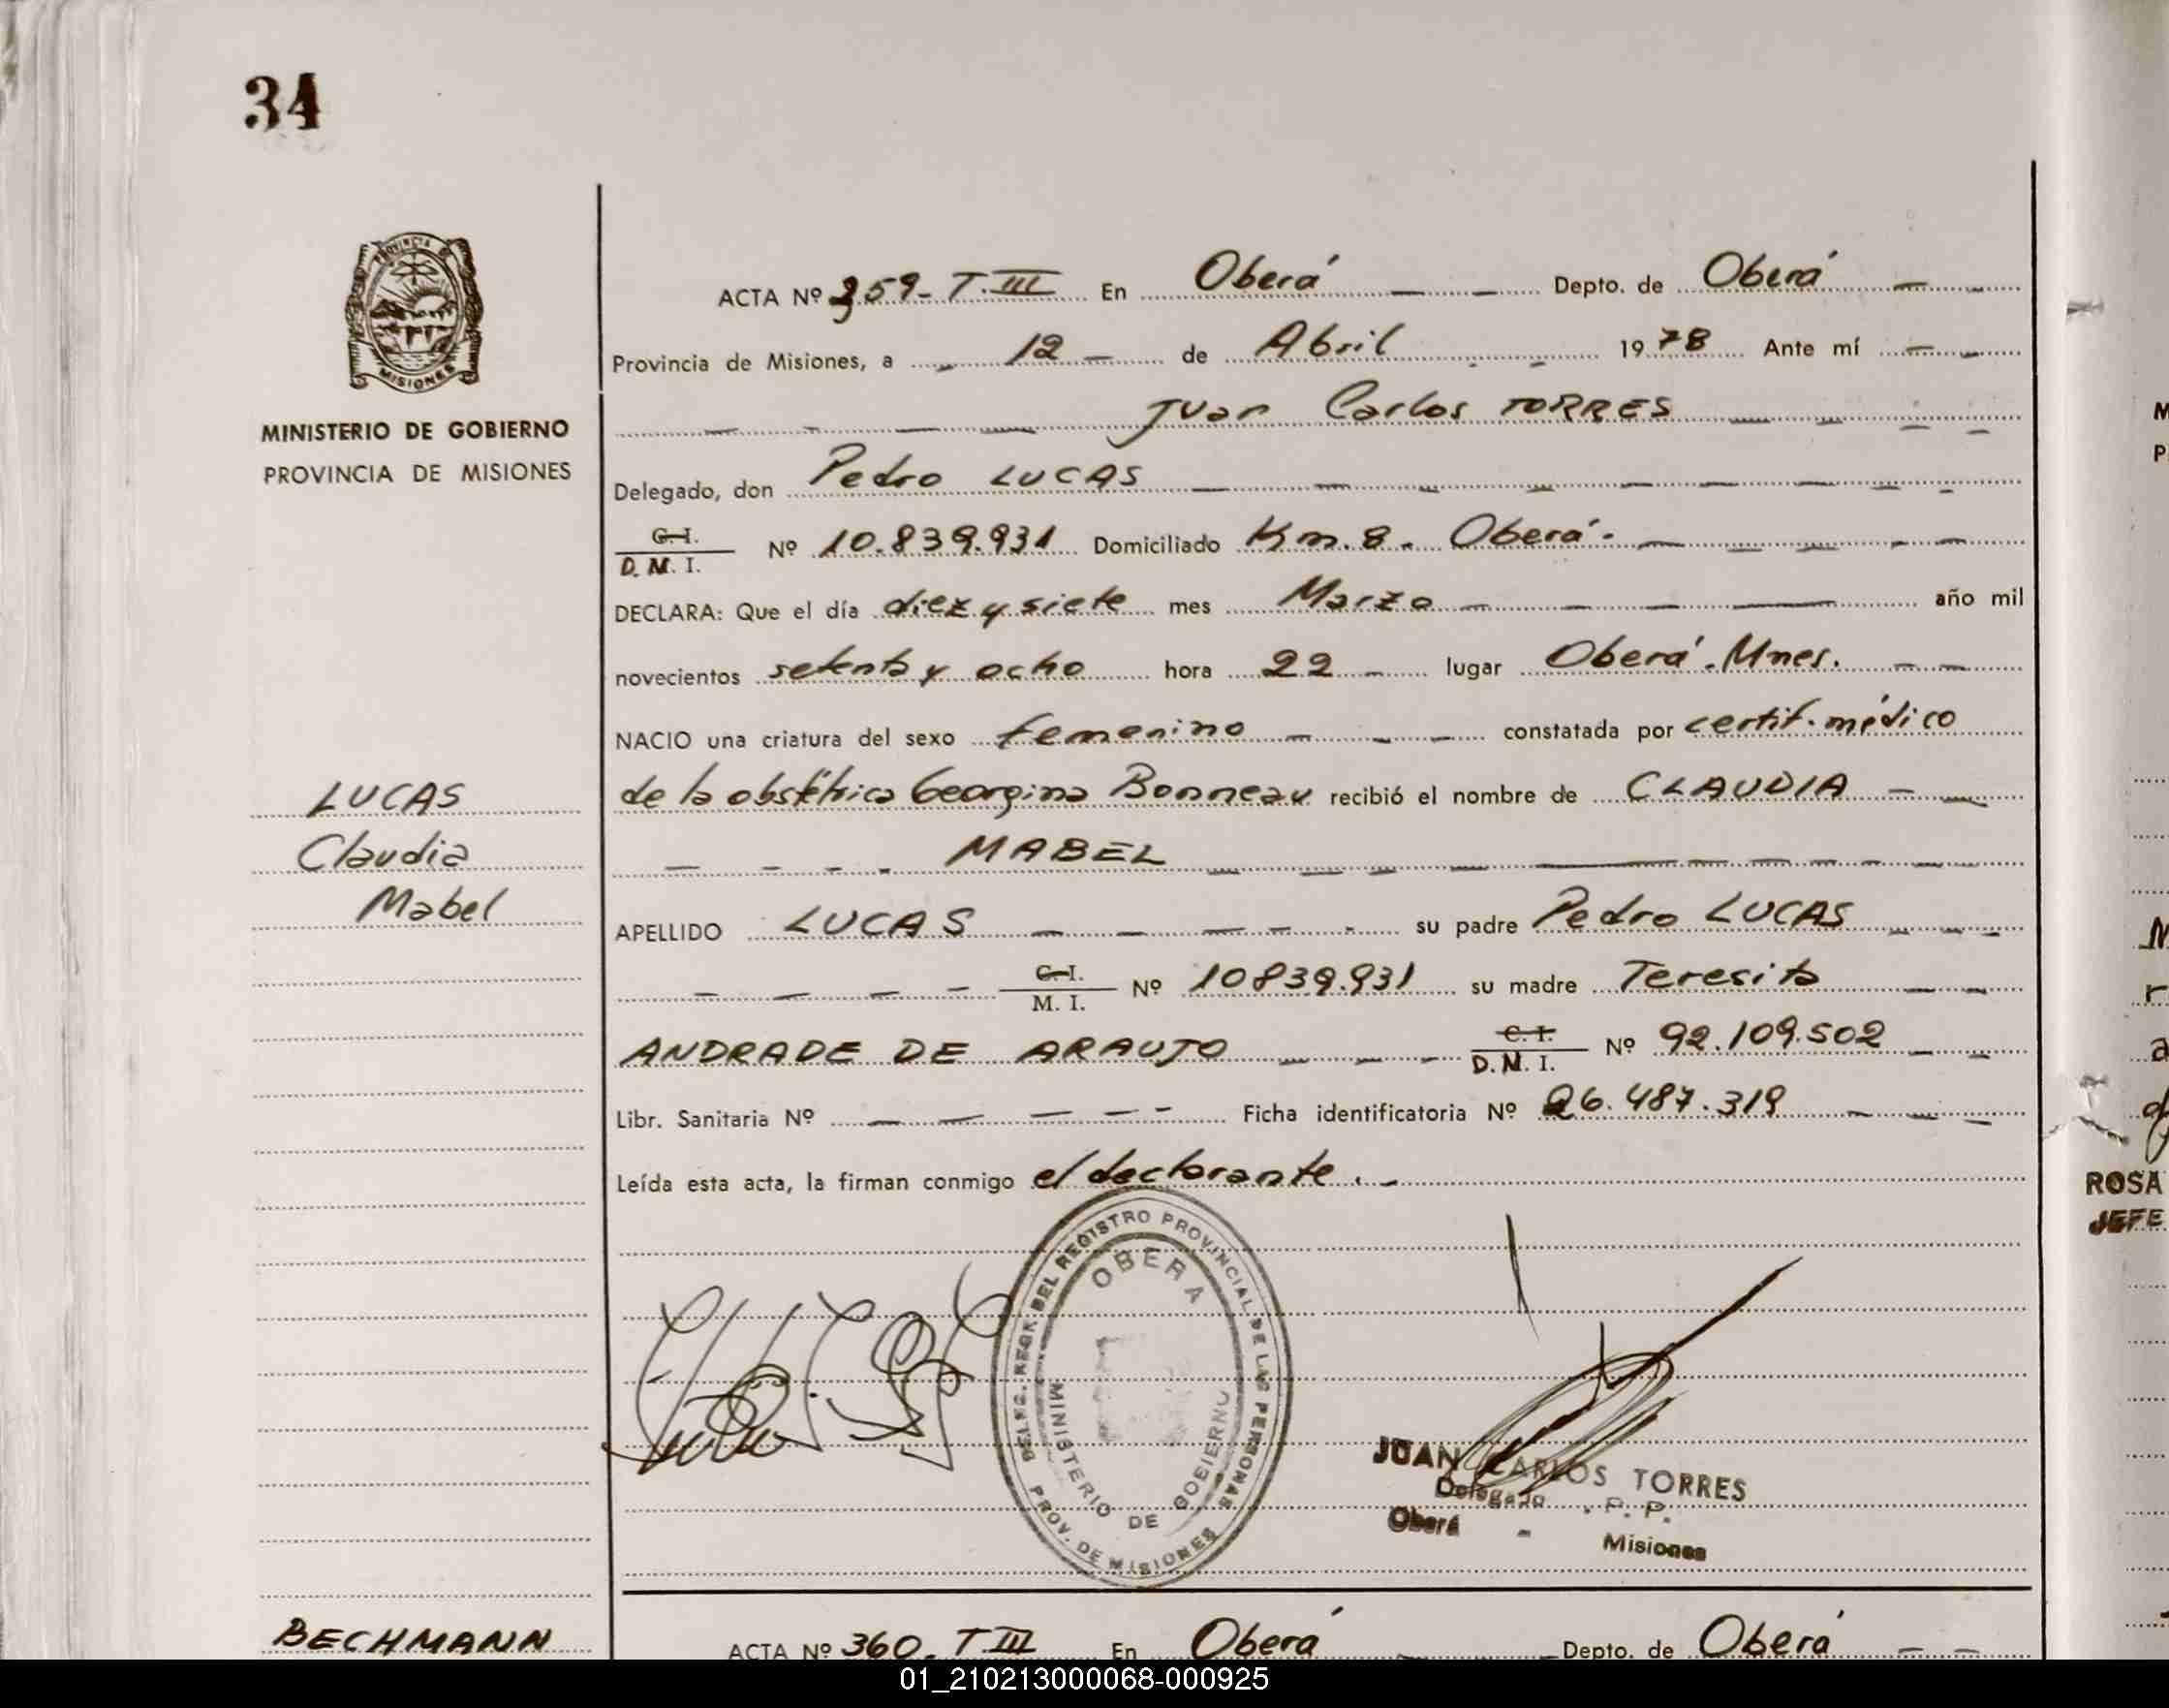 34
PROVINCIA DE
MISIONES
MINISTERIO DE GOBIERNO
PROVINCIA DE MISIONES
LUCAS
Claudia
Mabel
ACTA Nº 359-T.III En Oberá Depto. de Oberá
Provincia de Misiones, a 12 de Abril 1978 Ante mí
Juan Carlos TORRES
Delegado, don Pedro LUCAS
C.I. D.M.I. Nº 10.839.931 Domiciliado Km. 8. Oberá.
DECLARA: Que el día diez y siete mes Marzo año mil
novecientos setenta y ocho hora 22 lugar Oberá. Mnes.
NACIO una criatura del sexo femenino constatada por certif. médico
de la obstétrica Georgina Bonneau recibió el nombre de CLAUDIA
MABEL
APELLIDO LUCAS su padre Pedro LUCAS
C.I. M.I. Nº 10839.931 su madre Teresita
ANDRADE DE ARAUJO C.I. D.M.I. Nº 92.109.502
Libr. Sanitaria Nº Ficha identificatoria Nº 26.487.319
Leída esta acta, la firman conmigo el declarante.
DELEG. REGR. DEL REGISTRO PROVINCIAL DE LAS PERSONAS
OBERA
MINISTERIO DE GOBIERNO
PROV. DE MISIONES
JUAN CARLOS TORRES
Delegado R. P. P.
Oberá - Misiones
BECHMANN
ACTA Nº 360. T III En Oberá Depto. de Oberá
ROSA
JEFE
01_210213000068-000925